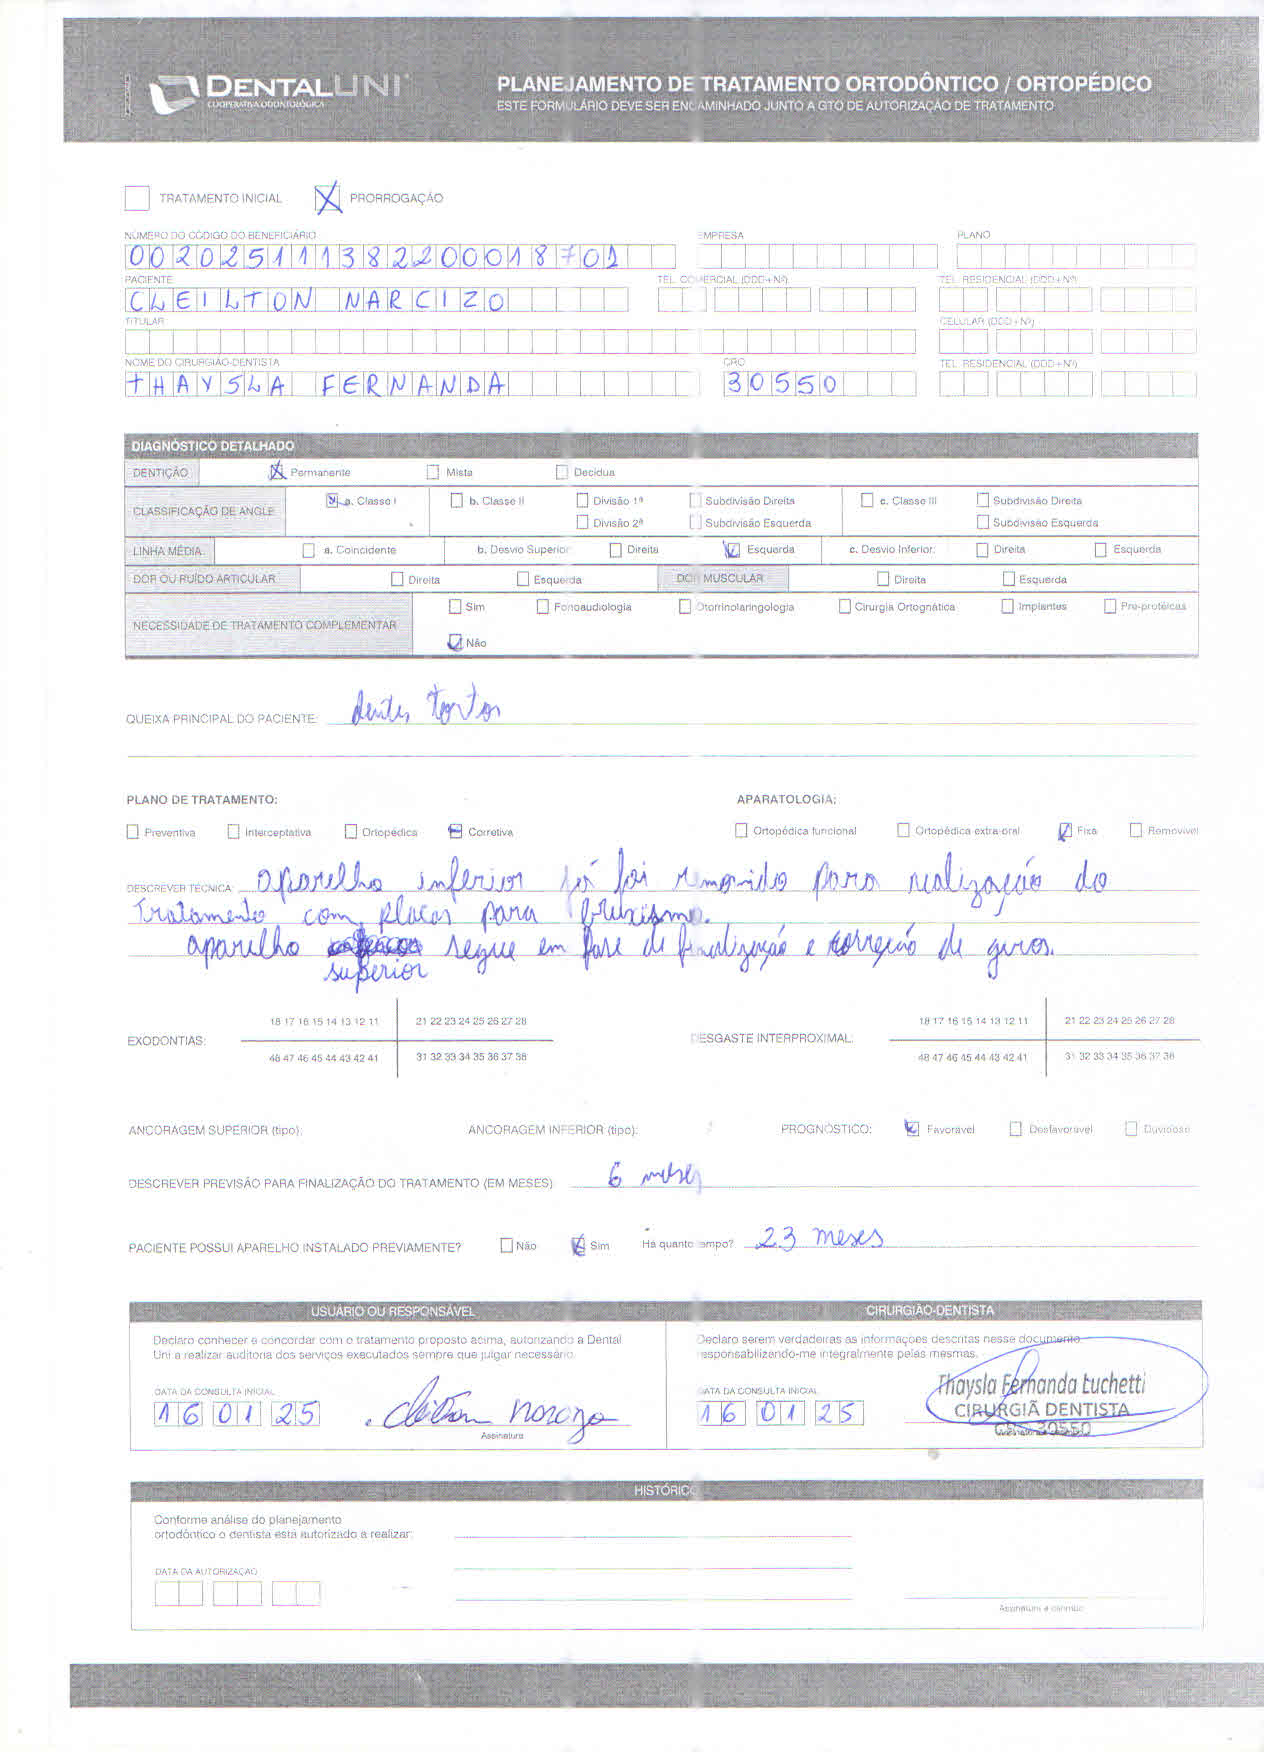 DENTALUNI
COOPERATIVA ODONTOLÓGICA
PLANEJAMENTO DE TRATAMENTO ORTODÔNTICO / ORTOPÉDICO
ESTE FORMULÁRIO DEVE SER ENCAMINHADO JUNTO A GTO DE AUTORIZAÇÃO DE TRATAMENTO
TRATAMENTO INICIAL X PRORROGAÇÃO
NÚMERO DO CÓDIGO DO BENEFICIÁRIO EMPRESA PLANO
002025111382200018701
PACIENTE TEL. COMERCIAL (DDD+Nº) TEL. RESIDENCIAL (DDD+Nº)
CLEILTON NARCIZO
TITULAR CELULAR (DDD+Nº)
NOME DO CIRURGIÃO-DENTISTA CRO TEL. RESIDENCIAL (DDD+Nº)
THAYSLA FERNANDA 30550
DIAGNÓSTICO DETALHADO
DENTIÇÃO X Permanente Mista Decídua
CLASSIFICAÇÃO DE ANGLE a. Classe I b. Classe II Divisão 1ª Subdivisão Direita c. Classe III Subdivisão Direita
Divisão 2ª Subdivisão Esquerda Subdivisão Esquerda
LINHA MÉDIA: a. Coincidente b. Desvio Superior: Direita Esquerda c. Desvio Inferior: Direita Esquerda
DOR OU RUÍDO ARTICULAR Direita Esquerda DOR MUSCULAR Direita Esquerda
NECESSIDADE DE TRATAMENTO COMPLEMENTAR Sim Fonoaudiologia Otorrinolaringologia Cirurgia Ortognática Implantes Pré-protéticas
Não
QUEIXA PRINCIPAL DO PACIENTE: dentes tortos
PLANO DE TRATAMENTO: APARATOLOGIA:
Preventiva Interceptativa Ortopédica Corretiva Ortopédica funcional Ortopédica extra-oral Fixa Removível
DESCREVER TÉCNICA: aparelho inferior já foi removido para realização do
tratamento com placas para bruxismo.
aparelho segue em fase de finalização e correção de giros.
superior
18 17 16 15 14 13 12 11 21 22 23 24 25 26 27 28 18 17 16 15 14 13 12 11 21 22 23 24 25 26 27 28
EXODONTIAS: DESGASTE INTERPROXIMAL:
48 47 46 45 44 43 42 41 31 32 33 34 35 36 37 38 48 47 46 45 44 43 42 41 31 32 33 34 35 36 37 38
ANCORAGEM SUPERIOR (tipo): ANCORAGEM INFERIOR (tipo): PROGNÓSTICO: Favorável Desfavorável Duvidoso
DESCREVER PREVISÃO PARA FINALIZAÇÃO DO TRATAMENTO (EM MESES): 6 meses
PACIENTE POSSUI APARELHO INSTALADO PREVIAMENTE? Não Sim Há quanto tempo? 23 meses
USUÁRIO OU RESPONSÁVEL CIRURGIÃO-DENTISTA
Declaro conhecer e concordar com o tratamento proposto acima, autorizando a Dental
Uni a realizar auditoria dos serviços executados sempre que julgar necessário.
Declaro serem verdadeiras as informações descritas nesse documento
responsabilizando-me integralmente pelas mesmas.
DATA DA CONSULTA INICIAL DATA DA CONSULTA INICIAL
16 01 25 16 01 25
Assinatura
Thaysla Fernanda Luchetti
CIRURGIÃ DENTISTA
30550
HISTÓRICO
Conforme análise do planejamento
ortodôntico o dentista está autorizado a realizar:
DATA DA AUTORIZAÇÃO
Assinatura e carimbo